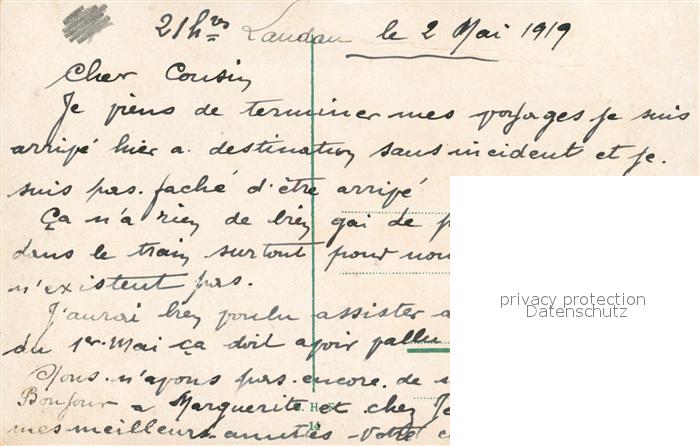 21hres Landau le 2 Mai 1919
Cher Cousin
Je viens de terminer mes voyages je suis
arrivé hier a destination sans incident et je
suis pas faché d'être arrivé
Ça n'a rien de bien gai de
dans le train surtout pour
n'existent pas.
J'aurai bien voulu assister
du 1er Mai ça doit avoir vallu
Nous n'avons pas encore de
Bonjour a Marguerite et chez
mes meilleurs amitiés votre
privacy protection
Datenschutz